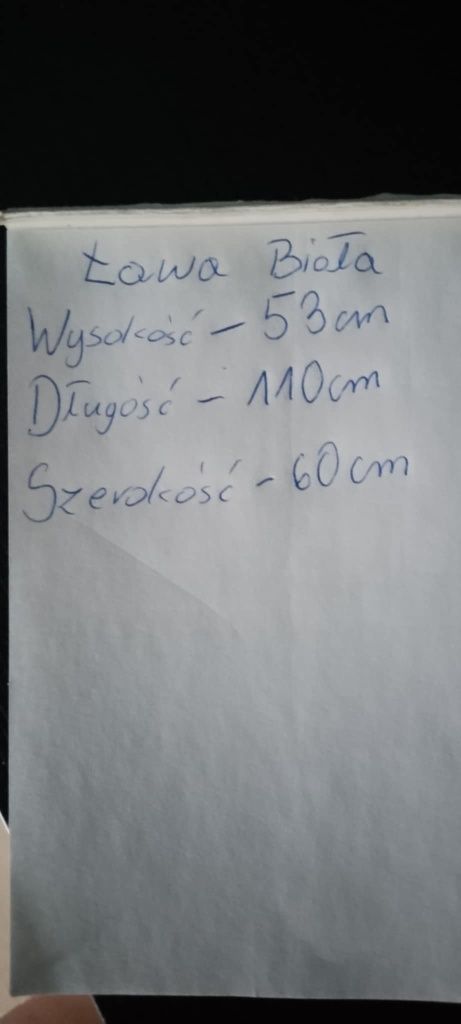 Ława Biała
Wysokość - 53cm
Długość - 110cm
Szerokość - 60cm